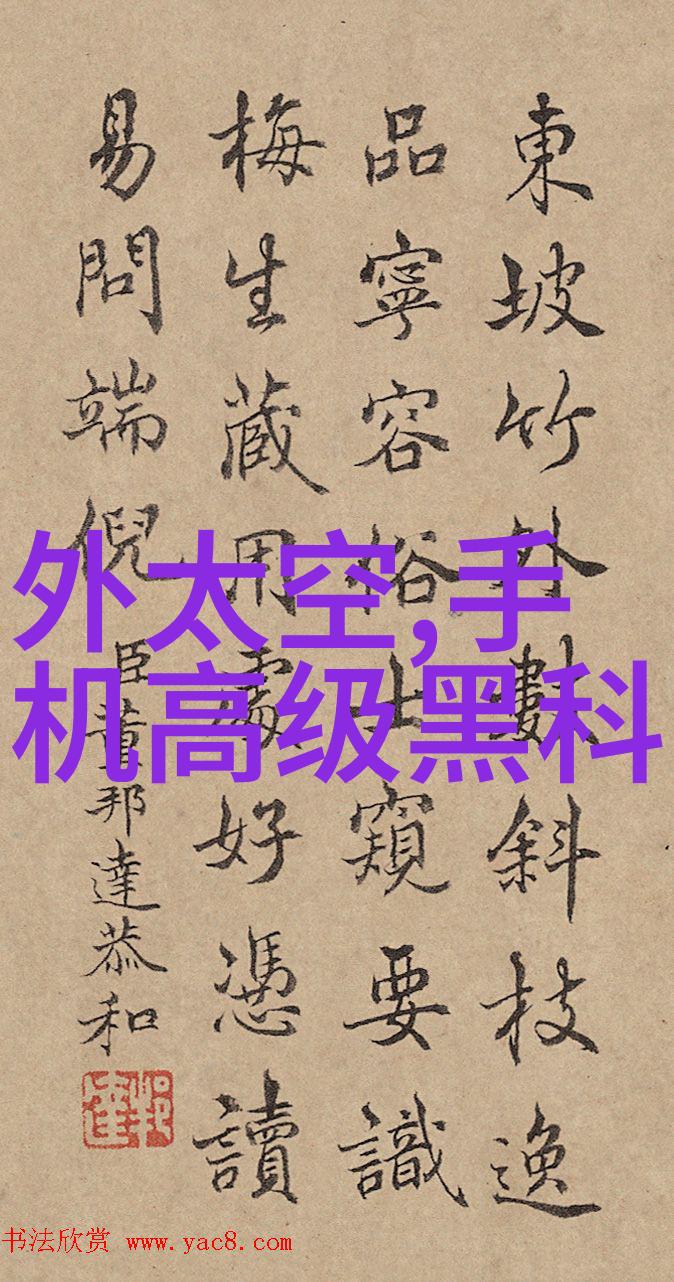 東坡竹外數斜枝逸
品寧容俗士窺要識
梅生藏用處好憑讀
易問端倪
臣董邦達恭和
外太空,手
机高级黑科
书法欣赏 www.yac8.com